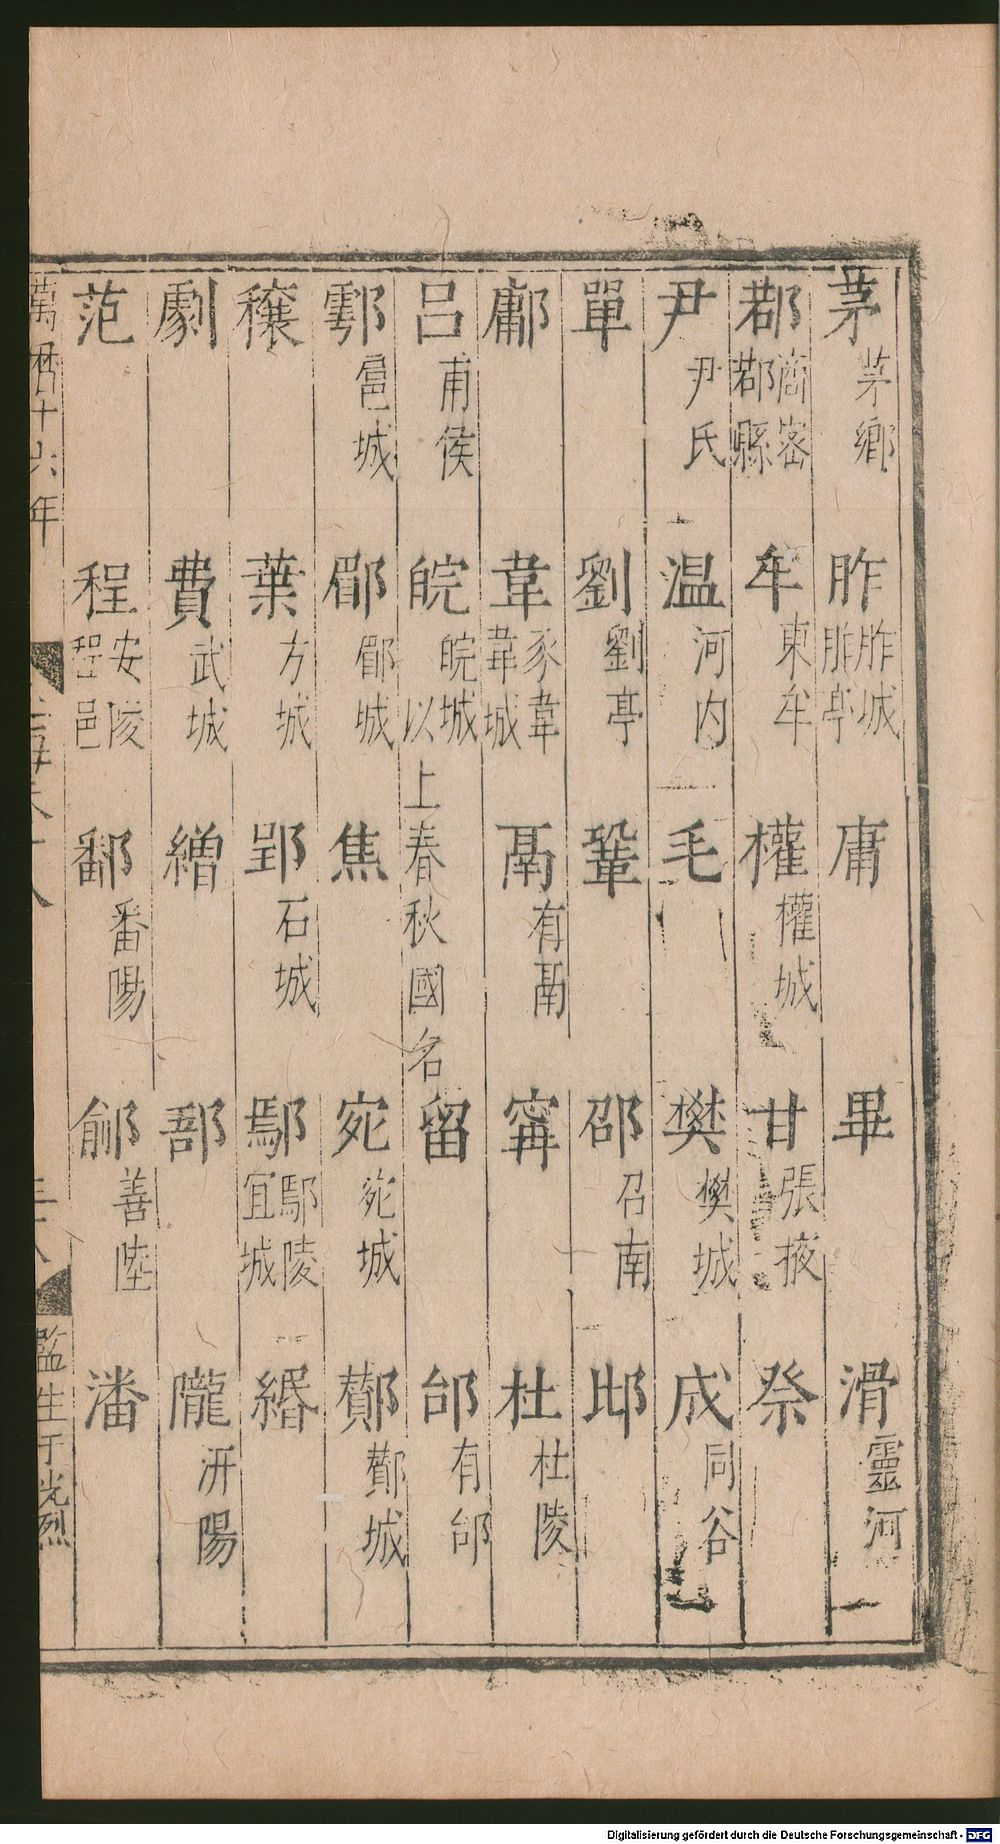 茅茅鄉 胙胙城胙亭 庸 畢 滑靈河
鄀商密鄀縣 牟東牟 權權城 甘張掖 祭
尹尹氏 温河内 毛 樊樊城 成同谷
單 劉劉亭 鞏 邵召南 邶
鄘 韋豕韋韋城 鬲有鬲 甯 杜杜陵
吕甫侯 皖皖城以上春秋國名 留 邰有邰
鄠扈城 郿郿城 焦 宛宛城 鄼鄼城
穰 葉方城 郢石城 鄢鄢陵宜城 緡
劇 費武城 繒 郚 隴汧陽
范 程安陵程邑 鄱番陽 鄃善陸 潘
萬曆十六年
監生于光烈
Digitalisierung gefördert durch die Deutsche Forschungsgemeinschaft - DFG